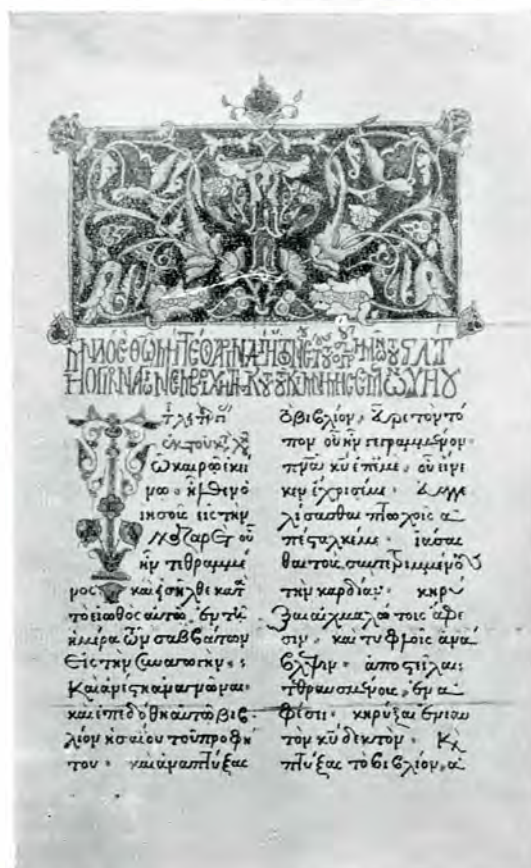 ἐκ τοῦ κ λ
Τῶ καιρῶ ἐκεί
νω · ἦλθεν ὁ
ἰησοῦς εἰς τὴν
Ναζαρὲτ οὗ
ἦν τεθραμμέ
νος · καὶ εἰσῆλθε κατ
τὸ εἰωθὸς αὐτῶ, ἐν τῆ
ἡμέρα τῶν σαββάτων
εἰς τὴν συναγωγήν :
Καὶ ἀνέστη ἀναγνῶναι ·
καὶ ἐπεδόθη αὐτῶ βιβ
λίον ἡσαΐου τοῦ προφή
του · καὶ ἀναπτύξας
τὸ βιβλίον, εὗρε τὸν τό
πον οὗ ἦν γεγραμμένον ·
πνα κυ ἐπ' ἐμέ · οὗ εἵνε
κεν ἔχρισέ με · εὐαγγε
λίσασθαι πτωχοῖς ἀ
πέσταλκέ με · ἰάσασ
θαι τοὺς συντετριμμένους
τὴν καρδίαν · κηρύ
ξαι αἰχμαλώτοις ἄφε
σιν · καὶ τυφλοῖς ἀνά
βλεψιν · ἀποστεῖλαι
τεθραυσμένους, ἐν ἀ
φέσει · κηρῦξαι ἐνιαυ
τὸν κυ δεκτόν · Κ
πτύξας τὸ βιβλίον, ἀ